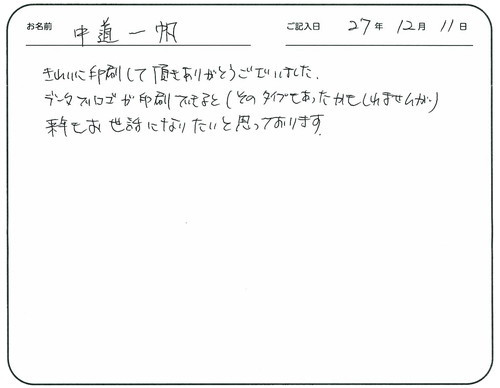 お名前 中道一帆 ご記入日 27年 12月 11日
きれいに印刷して頂きありがとうございました。
データでロゴが印刷できると(そのタイプもあったかもしれませんが)
来年もお世話になりたいと思っております。